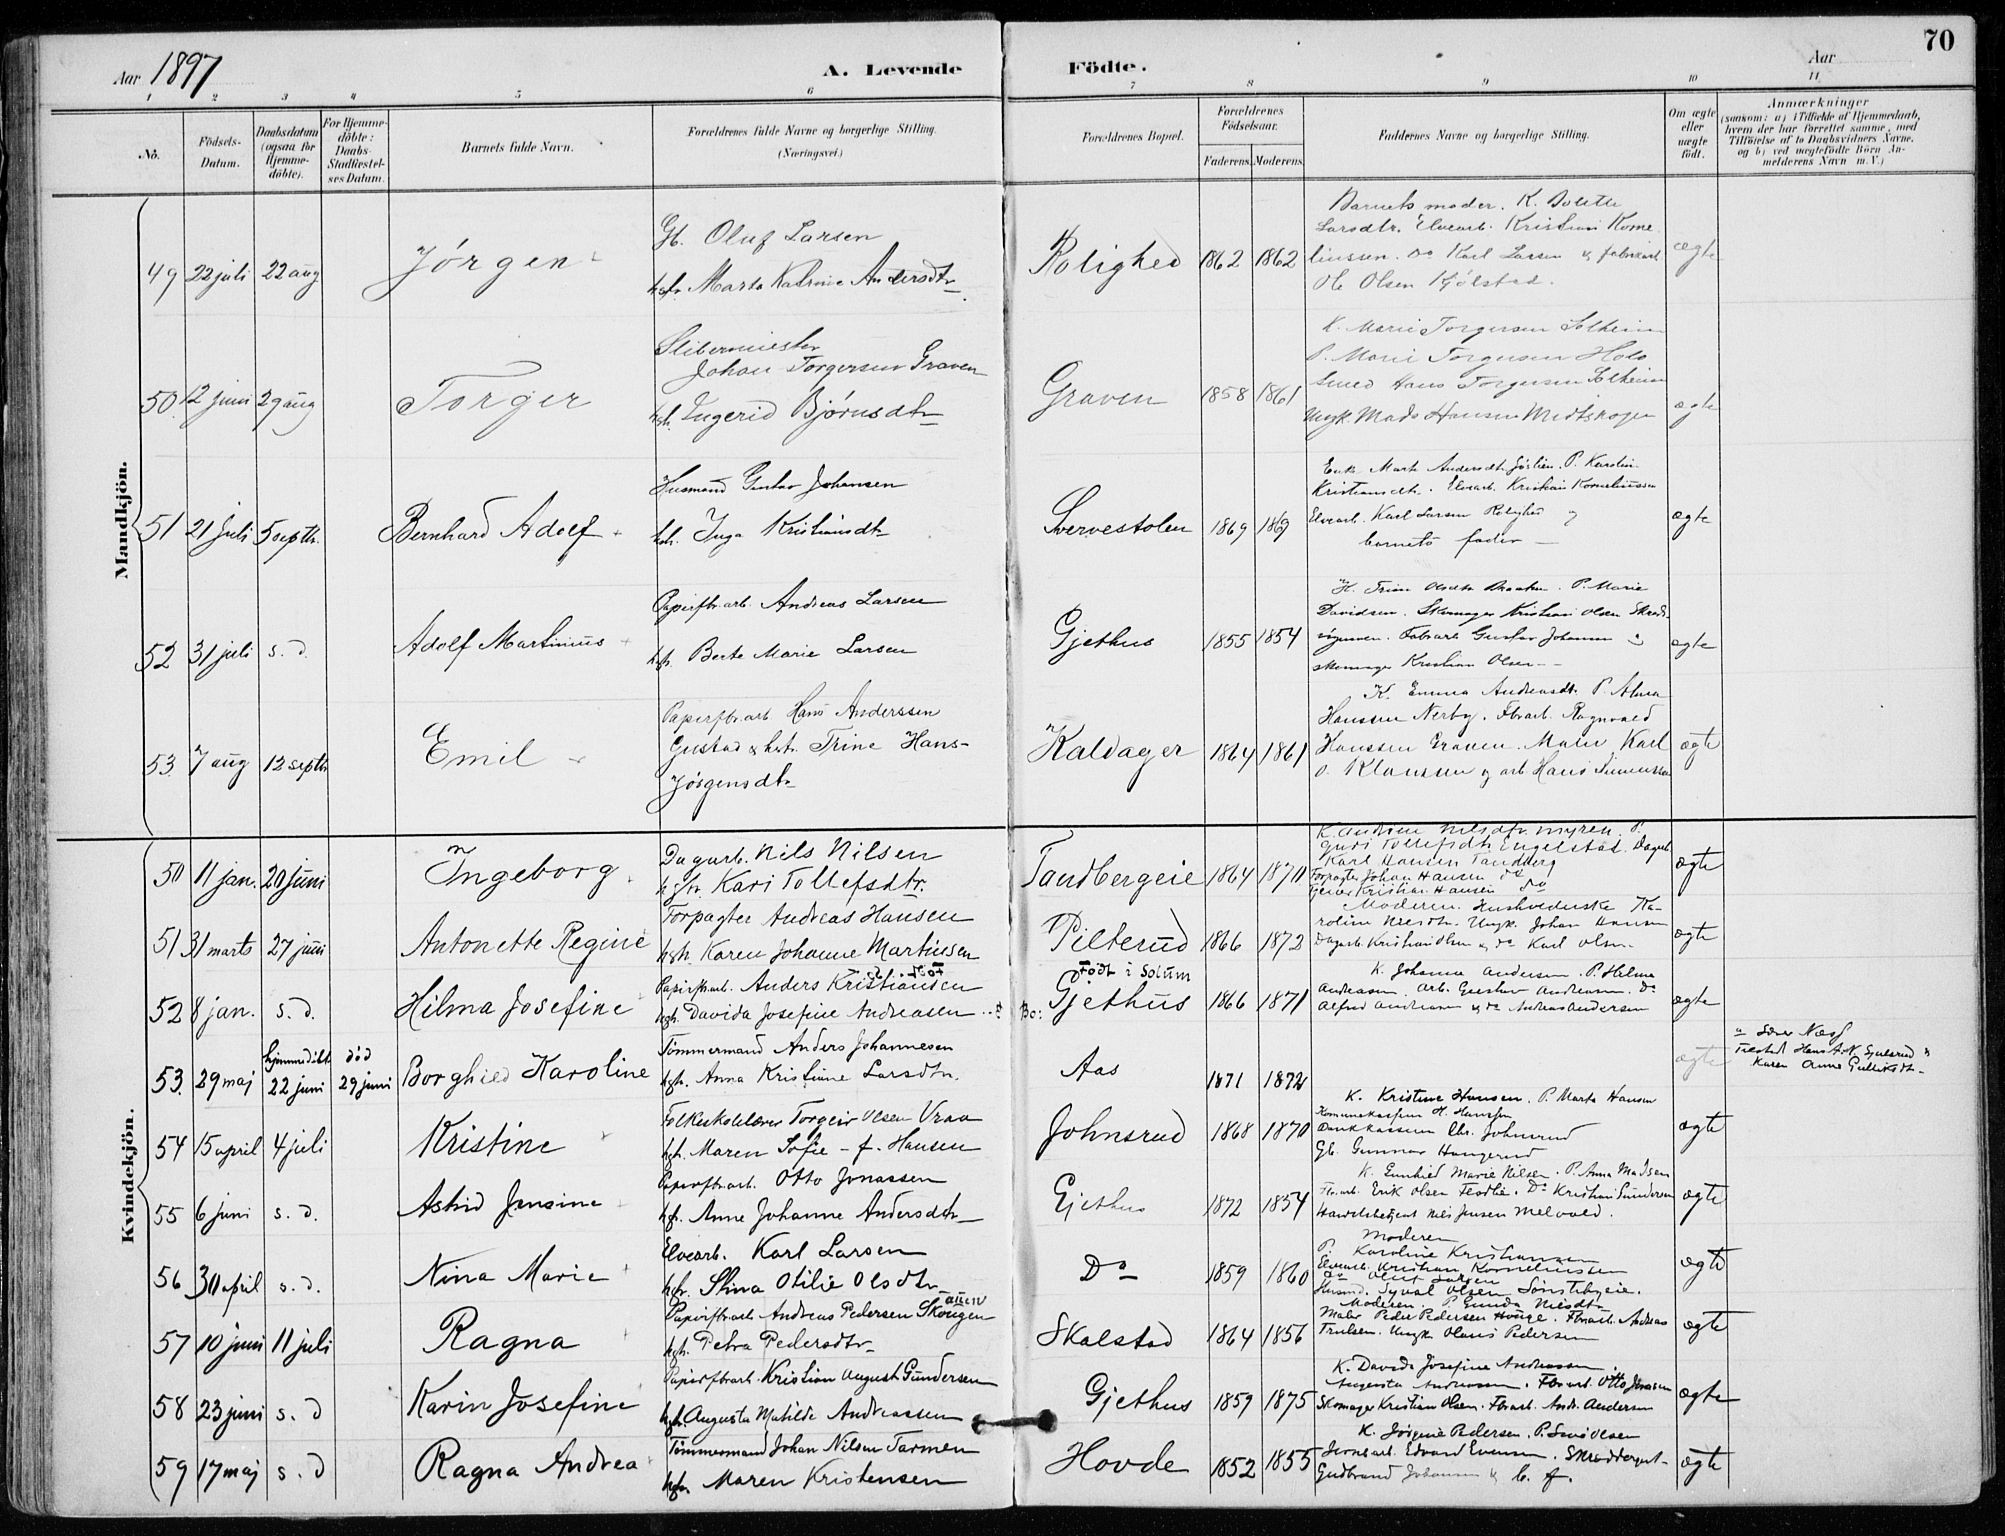 70
Aar 1897
A. Levende Födte.
Aar
1 2 3 4 5 6 7 8 9 10 11
No.
Födsels-Datum.
Daabsdatum (ogsaa for Hjemme-döbte).
For Hjemme-döbte: Daabs-Stadfæstel-ses Datum.
Barnets fulde Navn.
Forældrenes fulde Navne og borgerlige Stilling. (Næringsvei.)
Forældrenes Bopæl.
Forældrenes Födselsaar.
Faderens. Moderens.
Faddernes Navne og borgerlige Stilling.
Om ægte eller uægte födt.
Anmærkninger
(saasom: a) i Tilfælde af Hjemmedaab, hvem der har forrettet samme, med Tilföielse af to Daabsvidners Navne, og b) ved uægtefödte Börn An-melderens Navn m. V.)
Mandkjön.
49 22 juli 22 aug Jörgen
Gb. Oluf Larsen
hstr. Marta Katrine Andersdtr
Rolighed 1862 1862
Barnets moder. K. Bolette
Larsdtr. Elvearb. Kristian Korne
liussen. Do Karl Larsen & fabrikarb
Ole Olsen Kjölstad.
ægte
50. 12 juni 29 aug Torger
Slibermester
Johan Torgersen Graven
hstr. Ingerid Bjørnsdtr
Graven 1858 1861
K. Marie Torgersen Solheim
P. Marie Torgersen Hols
Smed Hans Torgersen Solheim
Ungk. Mads Hansen Midtskogen
ægte
51 21 juli 5 septbr. Bernhard Adolf
Husmand Gustav Johansen
hstr. Inga Kristiansdtr
Svervestolen 1869 1869
Enke Mart Andersdtr. P. Karolin
Kristiansdtr. Elvearb. Kristian Korneliussen
Elvearb. Karl Larsen Rolighed &
barnets fader
ægte
52 31 juli s. d. Adolf Martinius
Papirfbr.arb. Andreas Larsen
hstr. Berte Marie Larsen
Gjethus 1855 1854
K. Trine Olsdtr. P. Marie
Davidsen. Skomager Kristian Olsen
Fabrarb Gustav Johansen &
skomager Kristian Olsen
ægte
53. 7 aug 12 septbr Emil
Papirfbr.arb. Hans Anderssen
Gustad & hstr. Trine Hans-
Jörgensdtr
Kaldager 1864 1861
K. Emma Andreasdtr. P. Alma
Hanssen Nerby. Fbrarb. Ragnvald
Hanssen Graven. Maler Karl
O. Klaussen & arb. Hans Simensen
ægte
Kvindekjön.
50 11 jan. 20 juni Ingeborg
Dagarb. Nils Nilsen
hstr. Kari Tollefsdtr.
Tandbergeie 1864 1870
K. Andrine Nilsdtr. Myren. P.
Guri Tollefsdtr. Engelstad. Dagarb
Karl Hansen Tandberg
Forpagter Johan Hansen do
Kristian Hansen do
ægte
51 31 marts 27 juni Antonette Regine
Forpagter Andreas Hansen
hstr. Karen Johanne Martinsen
Pilterud 1866 1872
Moderen. Husholderske Ka-
roline Nilsdtr. Ungk. Johan Hansen
Dagarb. Kristian Olsen & do Karl Olsen.
ægte
52 8 jan. s. d. Hilma Josefine
Papirfbrarb. Anders Kristiansen
hstr. Davida Josefine Andreasen
Födt i Solum
Bo: Gjethus 1866 1871
K. Johanna Andersen. P. Helma
Andreasen. Arb. Gustav Andreasen. Do
Alfred Andreasen & do Andreas Andersen
ægte
53. 29 maj hjemmedöbt 22 juni död 29 juni Borghild Karoline
Tömmermand Anders Johannesen
hstr. Anna Kristiane Larsdtr.
Aas 1871 1872
ægte
Tilsted Hans A. N. Gjelsrud &
Karen Anne Gulliksdtr
54 15 april 4 juli Kristine
Folkeskolelærer Torgeir Olsen Vraa
hstr. Maren Sofie f. Hansen
Johnsrud 1868 1870
K. Kristine Hansen. P. Marta Hansen
Komunekasserer H. Hanssen
Bankkasserer Chr. Johnsrud
Gb. Gunnar Haugerud
ægte
55 6 juni s. d. Astrid Jensine
Papirfbrarb. Otto Jonassen
hstr. Anne Johanne Andersdtr
Gjethus 1872 1854
K. Marie Nilsen. P. Anna Madsen
Fbr.arb. Erik Olsen. Do Kristian Gundersen
Handelsbetjent Nils Jensen Melvold.
ægte
56 30 april s. d. Nina Marie
Elvearb. Karl Larsen
hstr. Stina Otilie Olsdtr
Do 1859 1860
Moderen
P. Karoline Kristiansen
Elvearb. Kristian Korneliussen
Do Oluf Larsen
Husmd. Syval Olsen Sönstebyeie.
ægte
57 10 juni 11 juli Ragna
Papirfbrarb. Andreas Pedersen Skougen
hstr. Petra Pedersdtr
Skalstad 1864 1856
Moderen. P. Gunda Nilsdtr
Maler Peder Pedersen Houge. Fbrarb. Andreas
Trulsen. Ungk. Olaus Pedersen
ægte
58 23 juni s. d Karin Josefine
Papirfbrarb. Kristian August Gundersen
hstr. Augusta Matilde Andreassen
Gjethus 1859 1875
K. Davida Josefine Andreassen
Augusta Andreassen. Fbrarb. Otto Jonassen
Skomager Kristian Olsen. Fbrarb. Andr. Andersen
ægte
59 17 maj s. d Ragna Andrea
Tömmermand Johan Nilsen Tarmen
hstr. Maren Kristensen
Hovde 1852 1855
K. Jørgine Pedersen. P. Olsen
Jernbarb. Edvard Evensen.
Gudbrand Johansen & b. f.
ægte